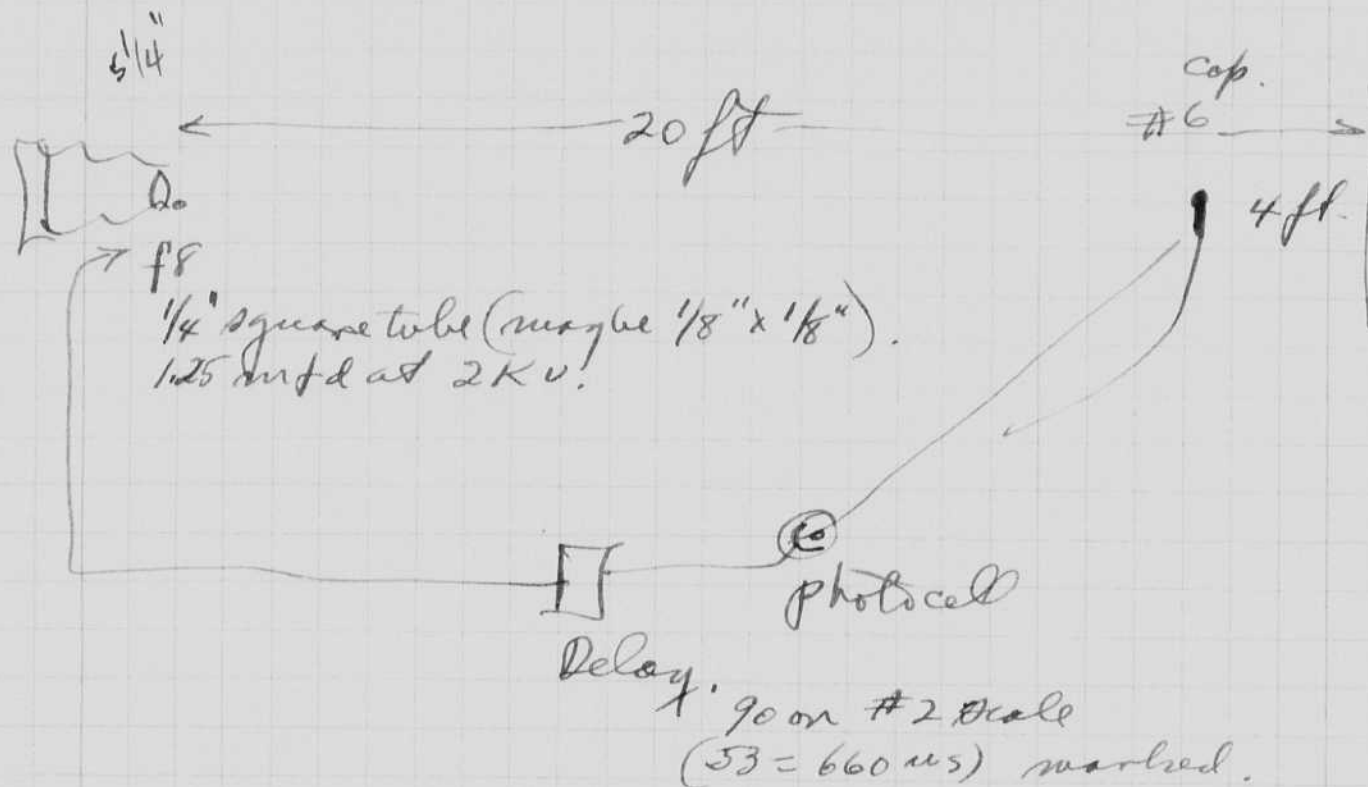 5 1/4"
cap.
20 ft
#6
4 ft.
f8
1/4" square tube (maybe 1/8" x 1/8").
1.25 mfd at 2 KV.
photocell
Delay.
90 on #2 scale
(53 = 660 us) marked.